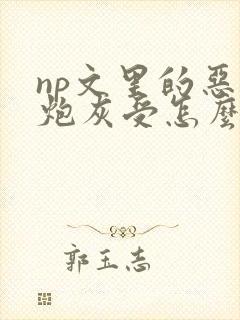 np文里的恶
炮灰受怎麼
郭玉志